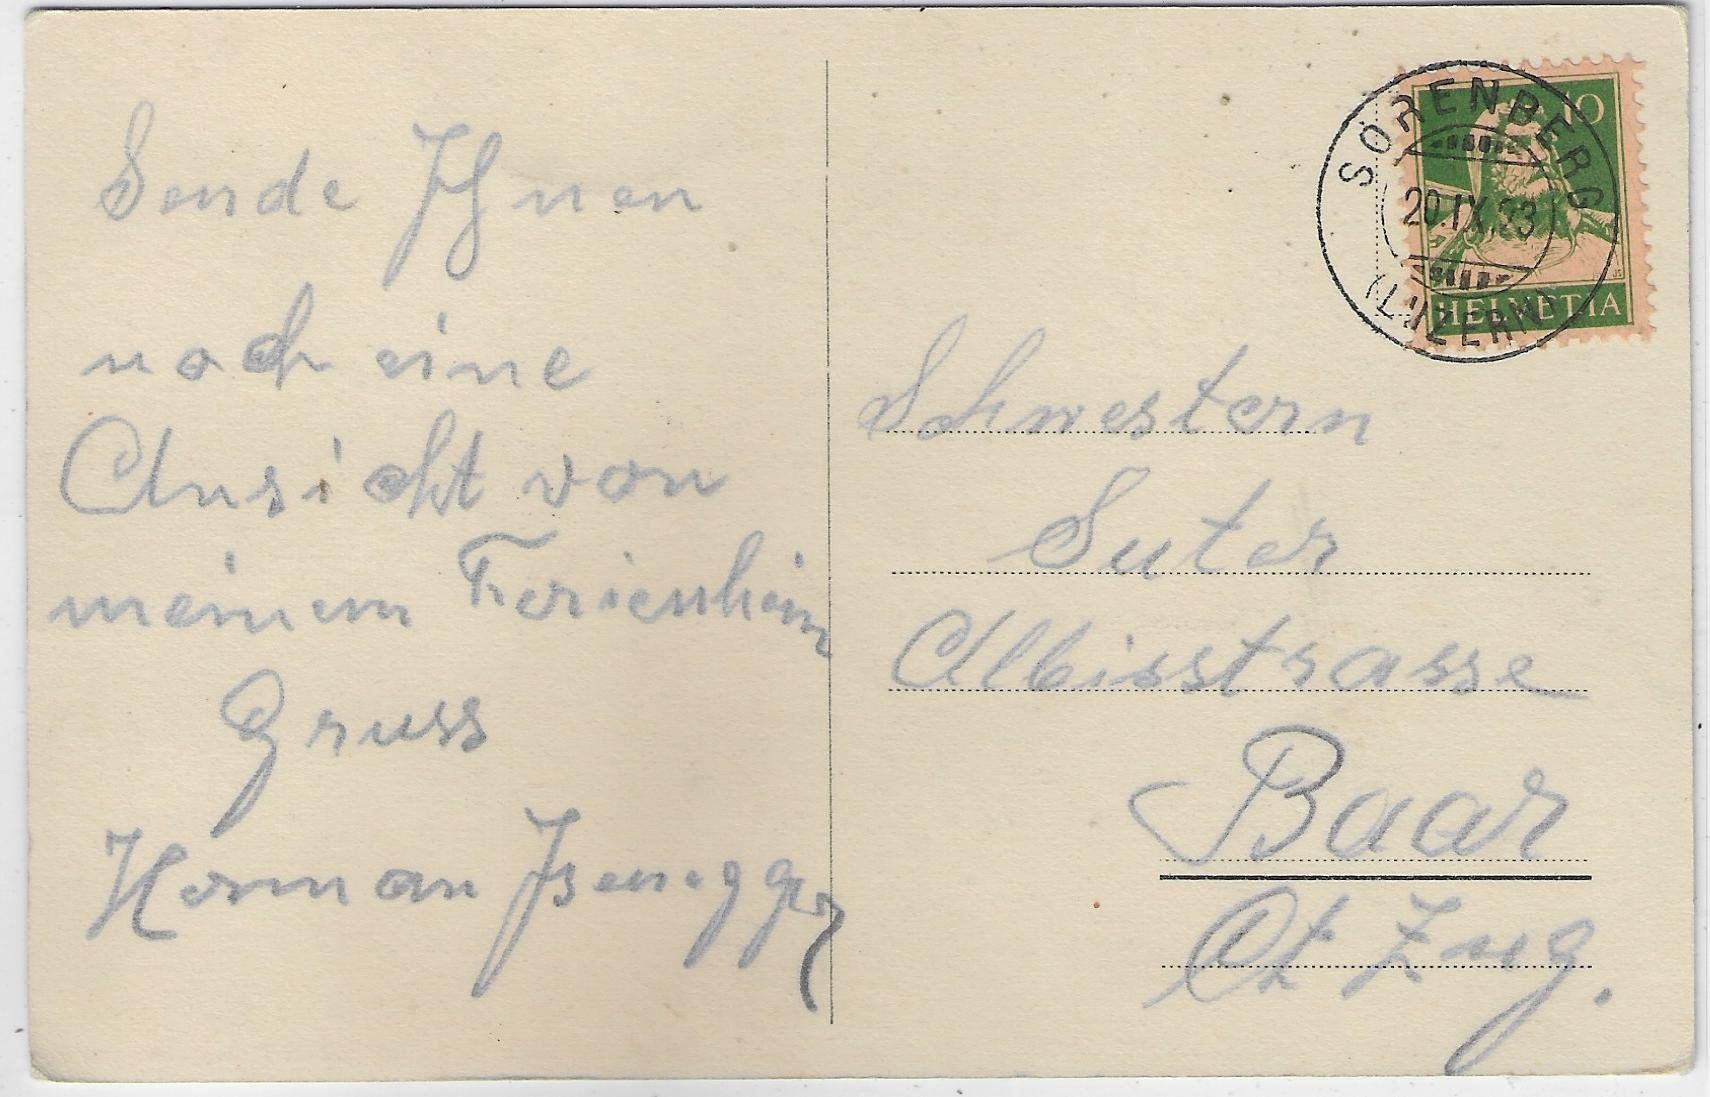 Sende Ihnen
noch eine
Ansicht von
meinem Ferienheim
Gruss
Herman Isenegger
10
HELVETIA
SÖRENBERG
20.IX.33
(LUZERN)
Schwestern
Suter
Albisstrasse
Baar
Ct Zug.